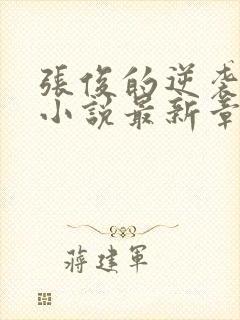 張俊的逆袭
小說最新章
蔣建軍